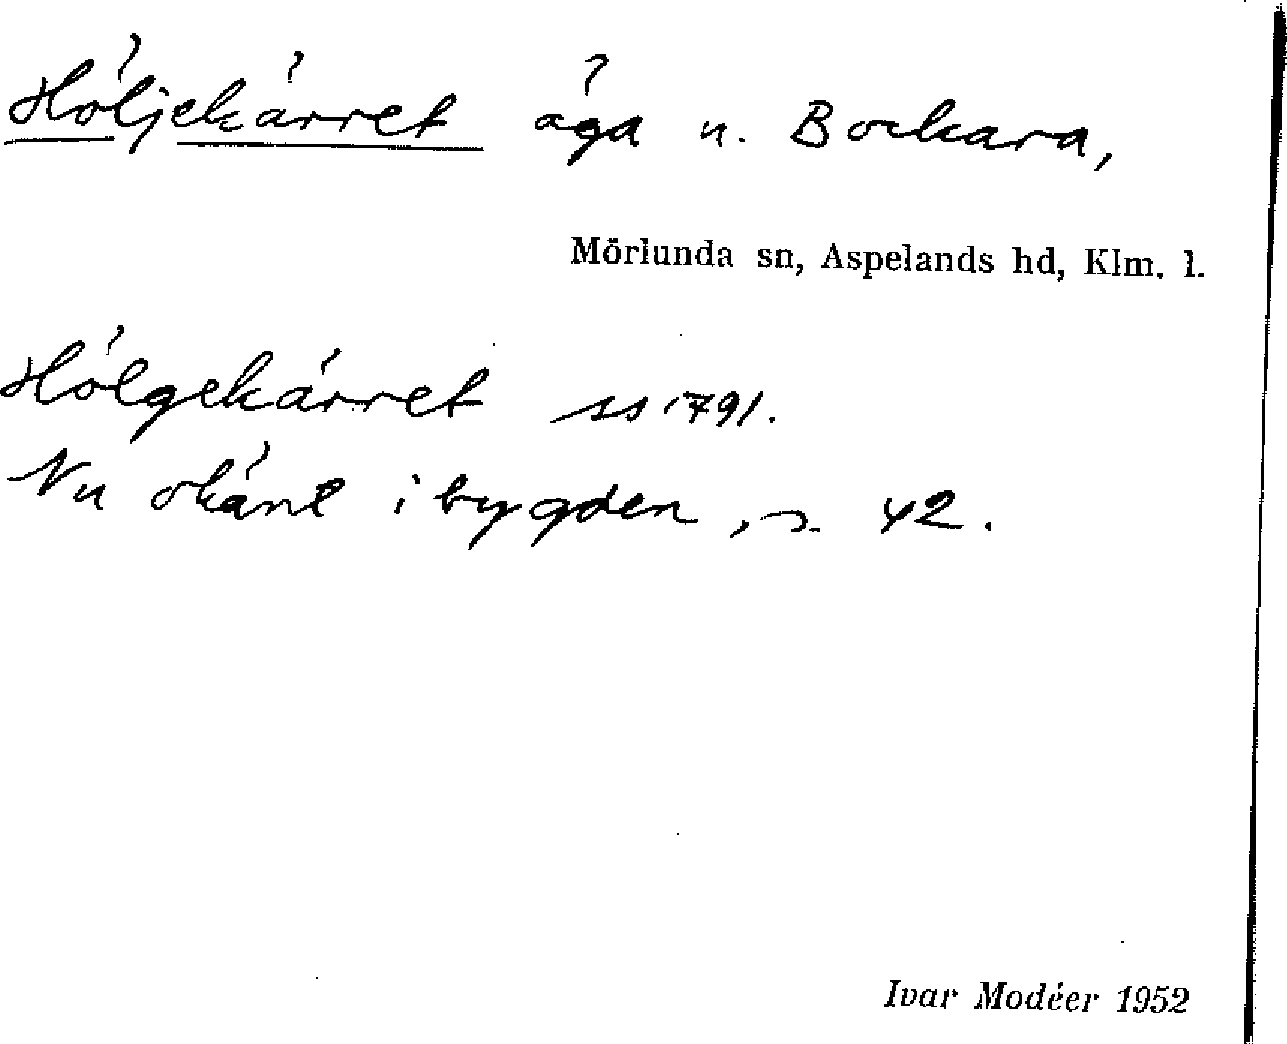 Höljekärret äga n. Bockara,
Mörlunda sn, Aspelands hd, Klm. l.
Hölgekärret ss 1791.
Nu okänt i bygden, s. 42.
Ivar Modéer 1952